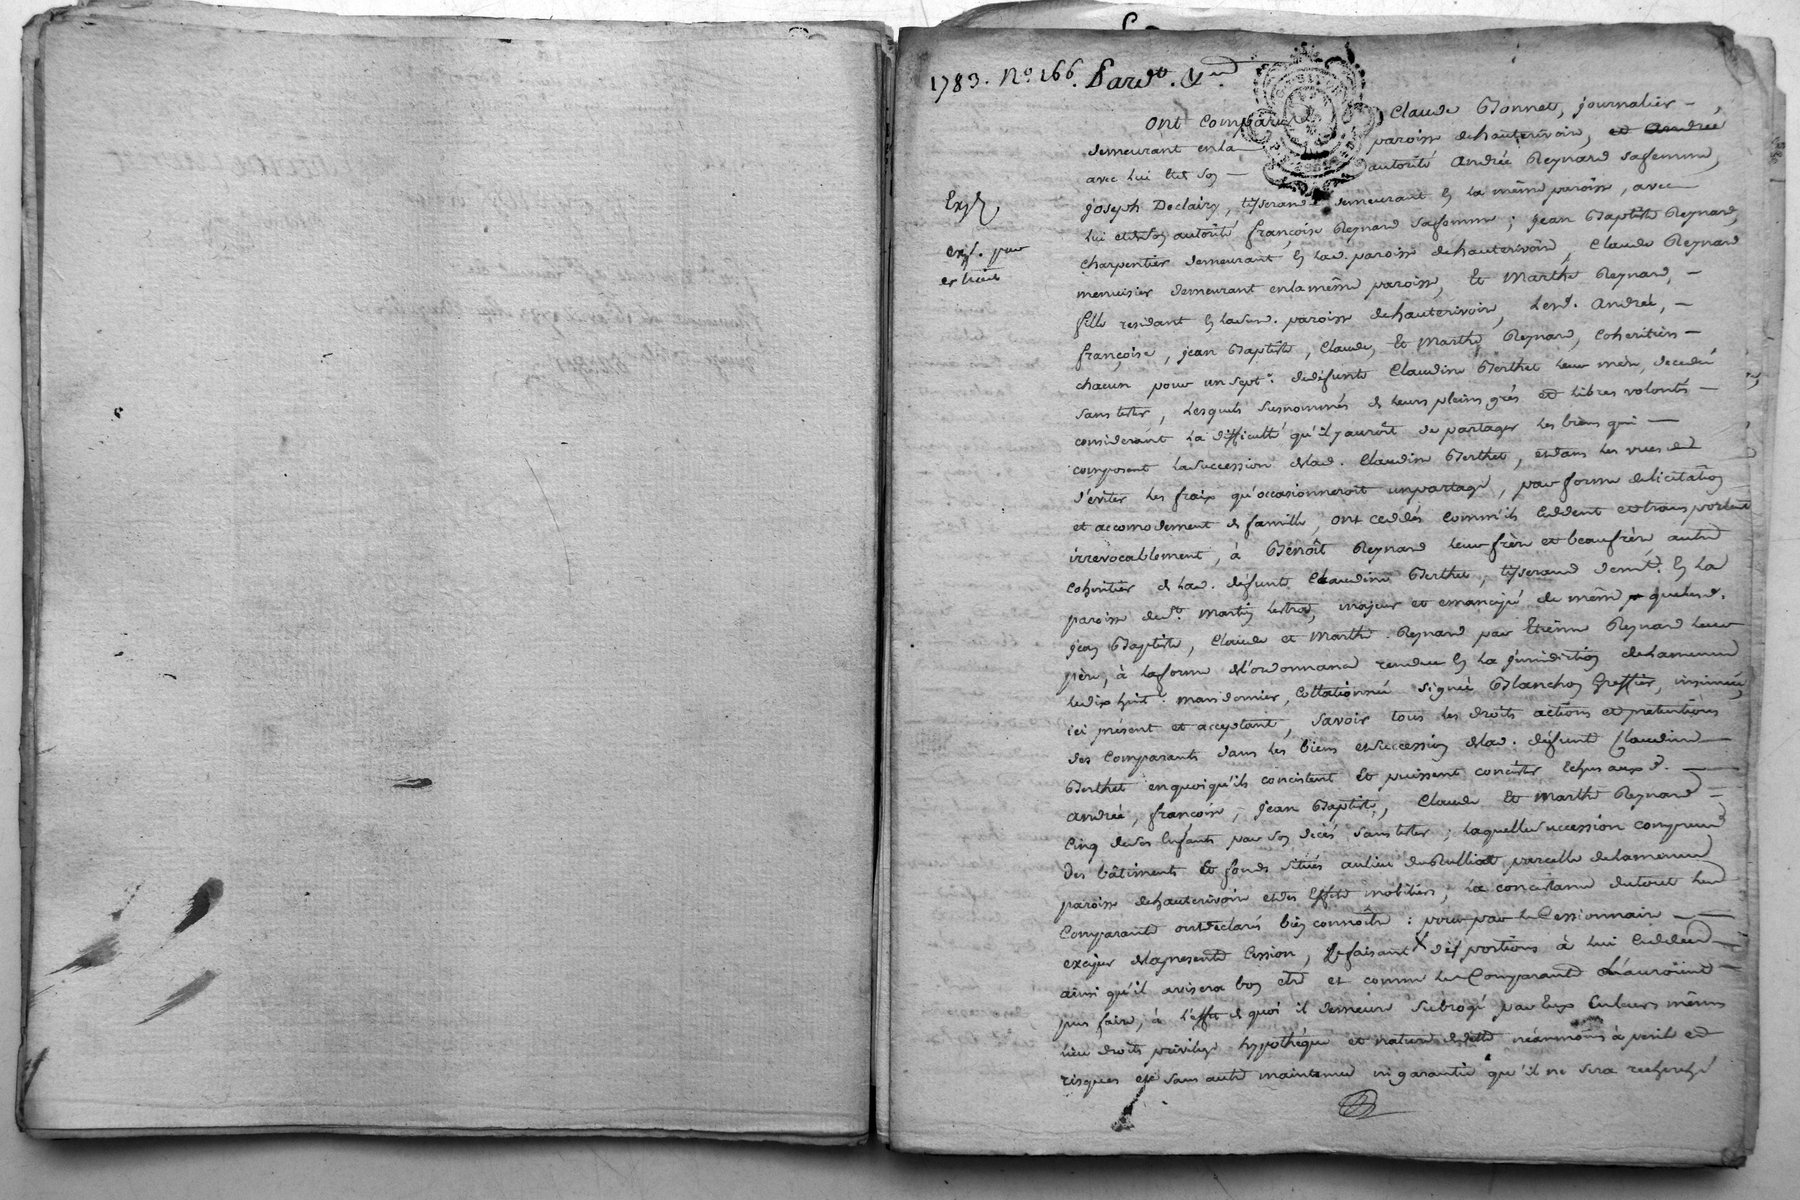 1783. No. 166. Pard.t &.
Ont Comparu Claude Bonnet, journalier –
demeurant en la paroisse de hauterivoire, et Andrée
avec lui Et de Son – autorité Andrée Reynard sa femme,
joseph Declairy, tisserand demeurant En la même paroisse, avec
Expe
lui et de Son autorité françoise Reynard sa femme ; jean Baptiste Reynard,
exp. par
charpentier demeurant En lad. paroisse de hauterivoire, Claude Reynard
extrait
menuisier demeurant en la même paroisse, Et Marthe Reynard, –
fille residant En lad. paroisse de hauterivoire, Lesd. Andrée, –
françoise, jean Baptiste, Claude, Et Marthe Reynard, Coheritiers –
chacun pour un sept.e de défunte Claudine Berthet leur mère, decedée
sans tester, Lesquels susnommés de leurs pleins grés et libres volontés –
considerant la difficulté qu'il y auroit de partager les biens qui –
composent la Succession de lad. Claudine Berthet, et dans les vues
d'eviter les fraix qu'occasionneroit un partage, par forme de licitation
et accomodement de famille, ont ceddés comm'ils Ceddent et transportent
irrevocablement, à Benoît Reynard leur frère et beaufrère autre
Coheritier de lad. défunte Claudine Berthet, tisserand demt. En la
paroisse de St. Martin Lestra, majeur et emancipé de même que lesd.
jean Baptiste, Claude et Marthe Reynard par Etienne Reynard leur
père, à la forme de l'ordonnance rendue En la jurisdiction de Lamenue
le dix huit mars dernier, Collationnée Signée Blanchon Greffier, insinuée,
ici présent et acceptant, Savoir tous les droits actions et pretentions
des Comparants dans les biens et Succession de lad. défunte Claudine –
Berthet en quoi qu'ils concistent Et puissent concister Echus auxd. –
andrée, françoise, jean Baptiste, Claude Et Marthe Reynard –
Cinq de Ses Enfants par Son décès sans tester ; laquelle Succession comprend
Des bâtiments Et fonds Situés au lieu de Rulliat parcelle de Lamenue
paroisse de hauterivoire et des Effets mobiliers, la concistance du tout les
Comparants ont declaré bien connoître : pour par le Cessionnaire –
exciper de la presente Cession, Se faisant des portions à lui Ceddées –
ainsi qu'il avisera bon etre et comme les Comparants L'auroient –
pu faire, à l'effet de quoi il demeure Subrogé par Eux En leurs mêmes
lieu droits privilege hypothéque et nature de dette néanmoins à peril et
risques et sans autre maintenue ni garantie qu'il ne sera recherché